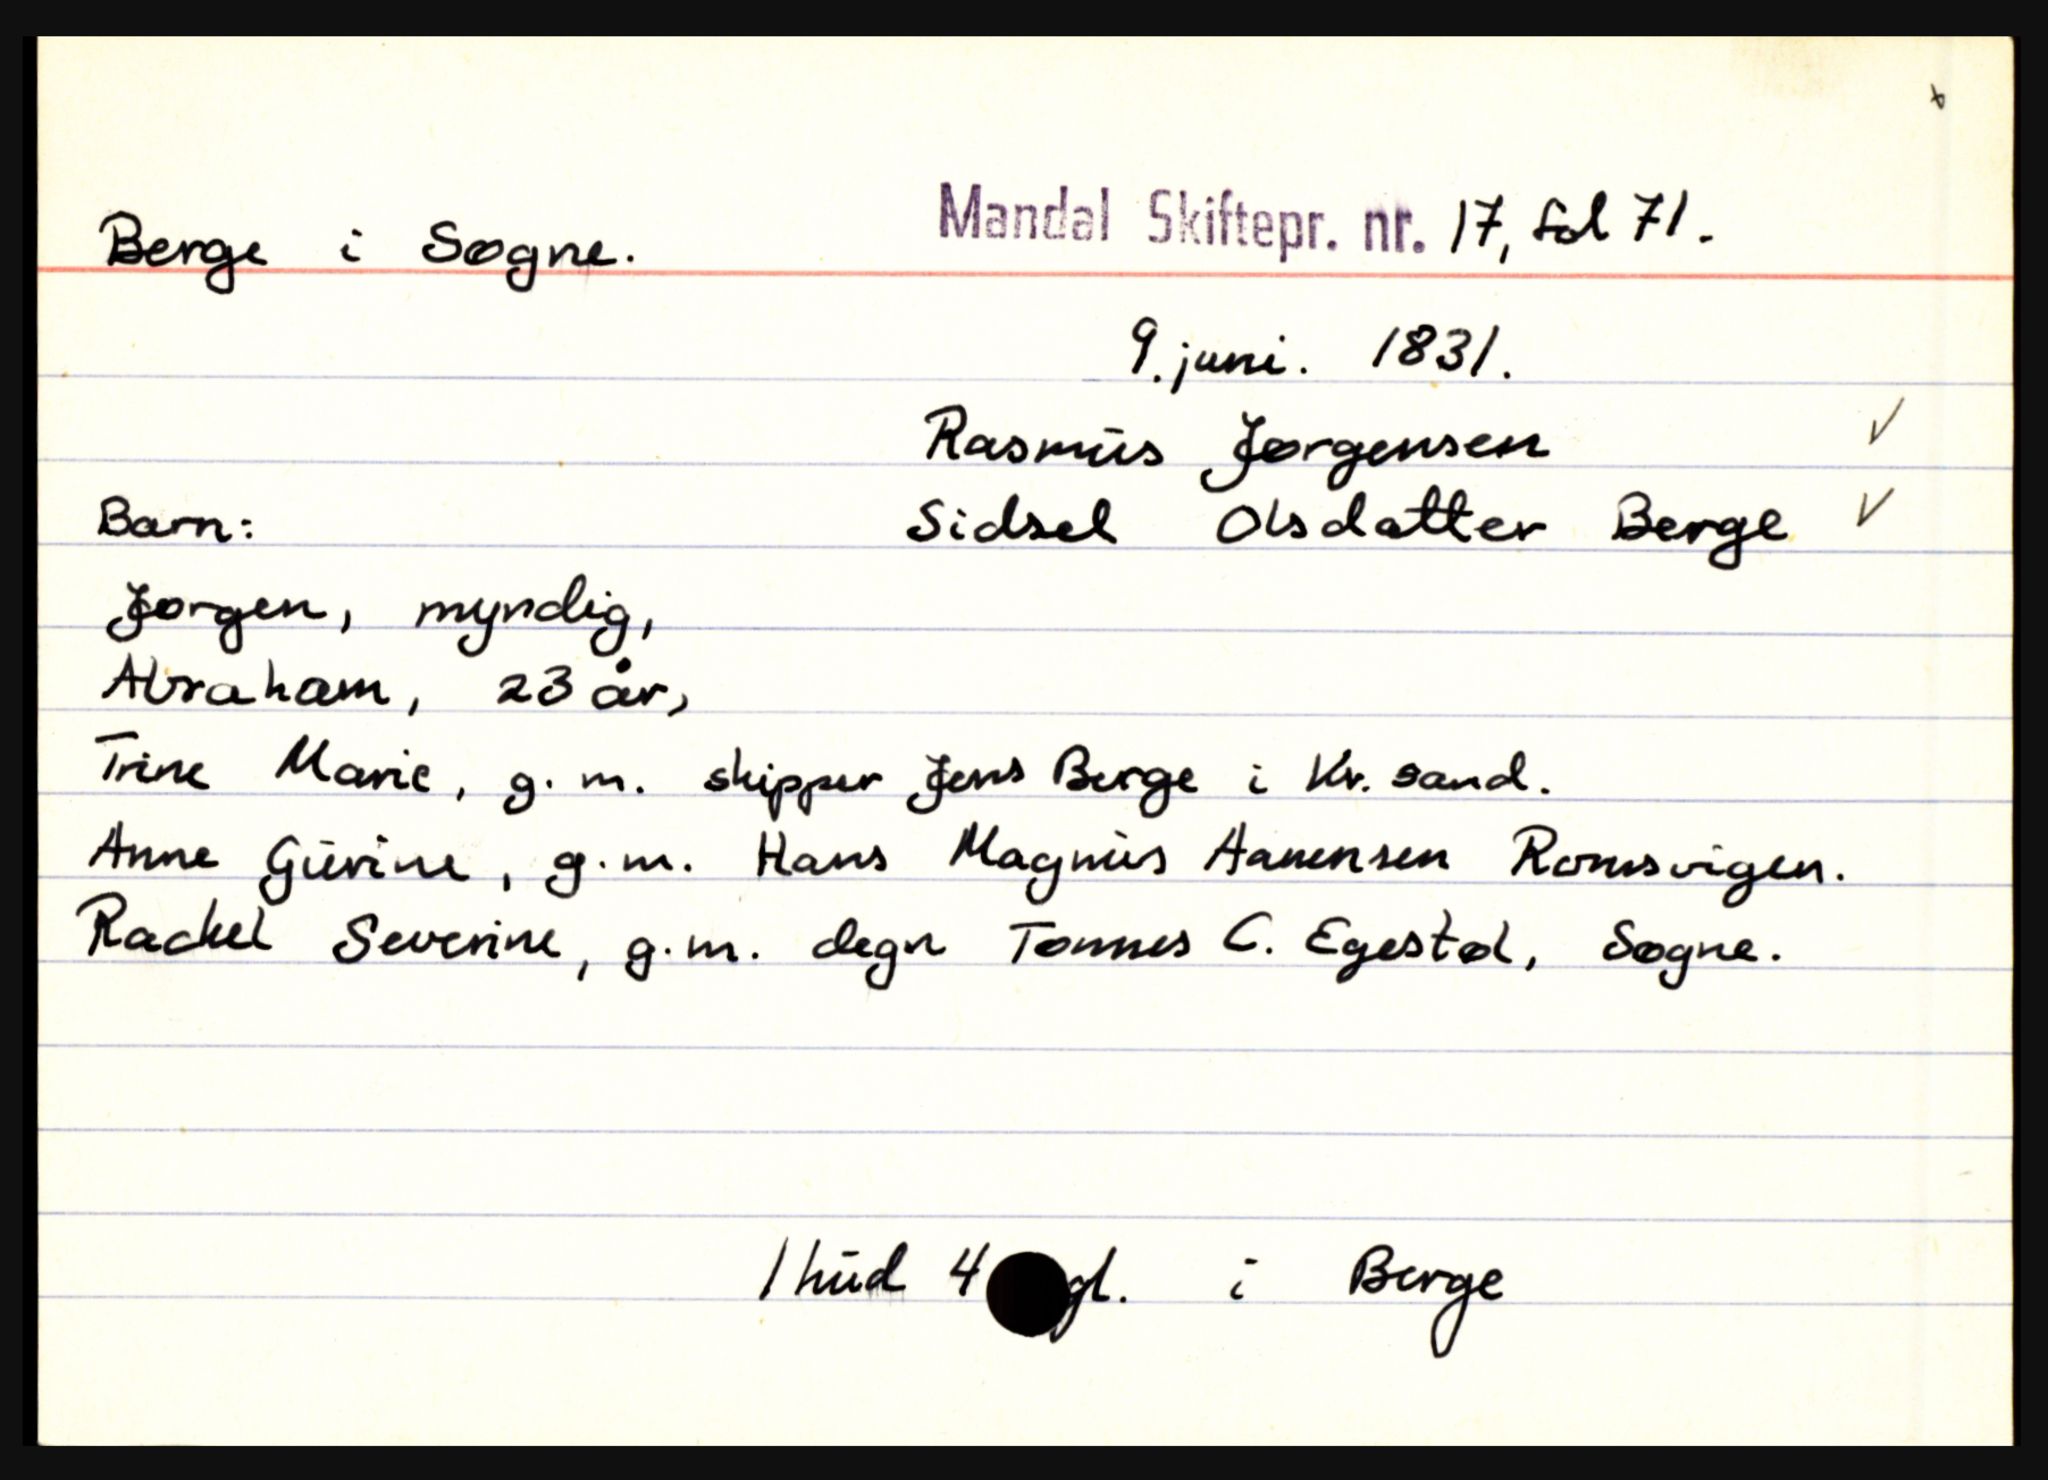 Berge i Søgne. Mandal Skiftepr. nr. 17, fol 71.
9. juni. 1831.
Rasmus Jørgensen
Barn: Sidsel Olsdatter Berge
Jørgen, myndig,
Abraham, 23 år,
Trine Marie, g. m. skipper Jens Berge i Kr. sand.
Anne Gurine, g. m. Hans Magnus Aanensen Romsvigen.
Rachel Severine, g. m. degn Tønnes C. Egestøl, Søgne.
1 hud 4 gl. i Berge